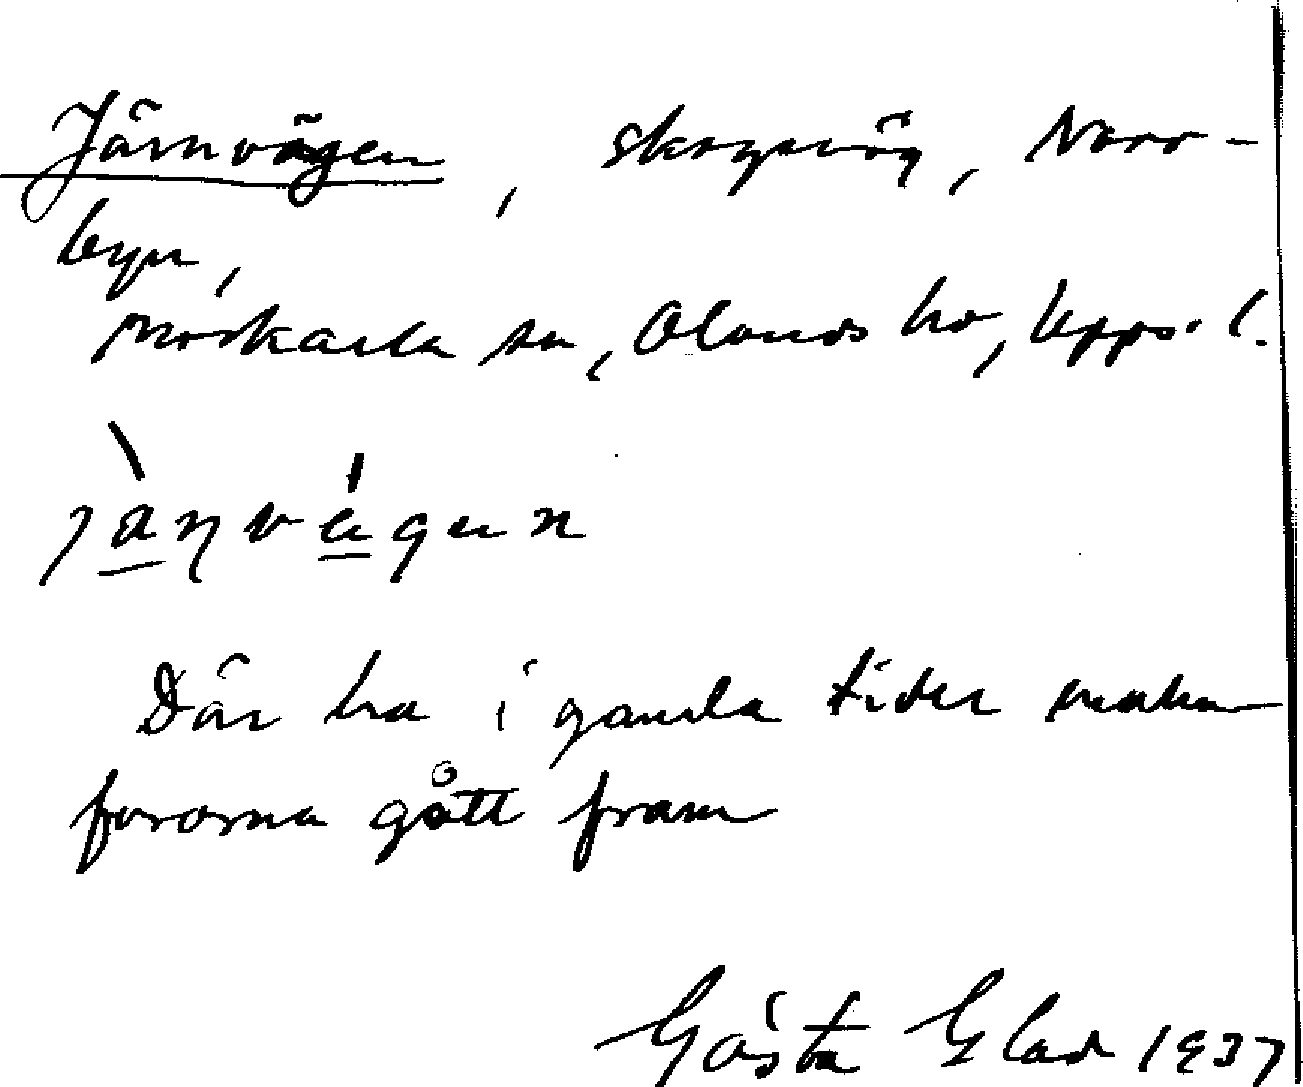 Järnvägen, skogsväg, Norr-
byn,
Morkarla sn, Olands hd, Upps. l.
jàṉvágen
Där ha i gamla tider malm
fororna gått fram
Gösta Glad 1937